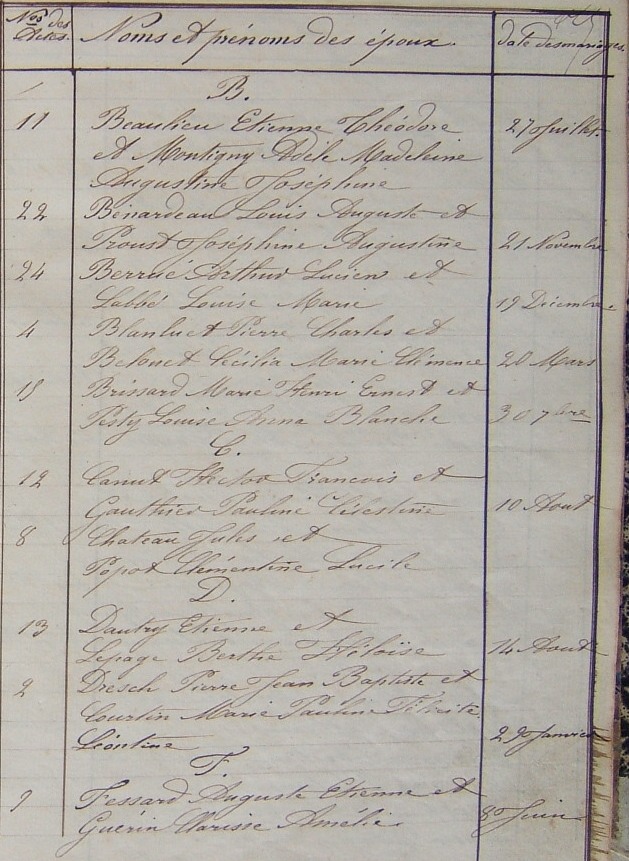 Nos des Actes. Noms et prénoms des époux. date des mariages.
B.
11 Beaulieu Etienne Théodore 27 Juillet.
et Montigny Adèle Madeleine
Augustine Joséphine
22 Bénardeau Louis Auguste et
Proust Joséphine Augustine 21 Novembre
24 Berrué Arthur Lucien et
Labbé Louise Marie 19 Décembre.
4 Blanluet Pierre Charles et
Marie Clémence 20 Mars
Brissard Marie Henri Ernest et
Pesty Louise Anna Blanche 30 7bre
C.
12 Canut Hector Francois et
Gauthier Pauline Célestine 10 Aout
8 Chateau Jules et
Popot Clémentine Lucile
D.
13 Dautry Etienne et
Lepage Berthe Héloïse 14 Aout
2 Dresch Pierre Jean Baptiste et
Courtin Marie Pauline Félicité
Léontine 29 Janvier
F.
9 Fessard Auguste Etienne et
Guérin Clarisse Amélie. 8 Juin